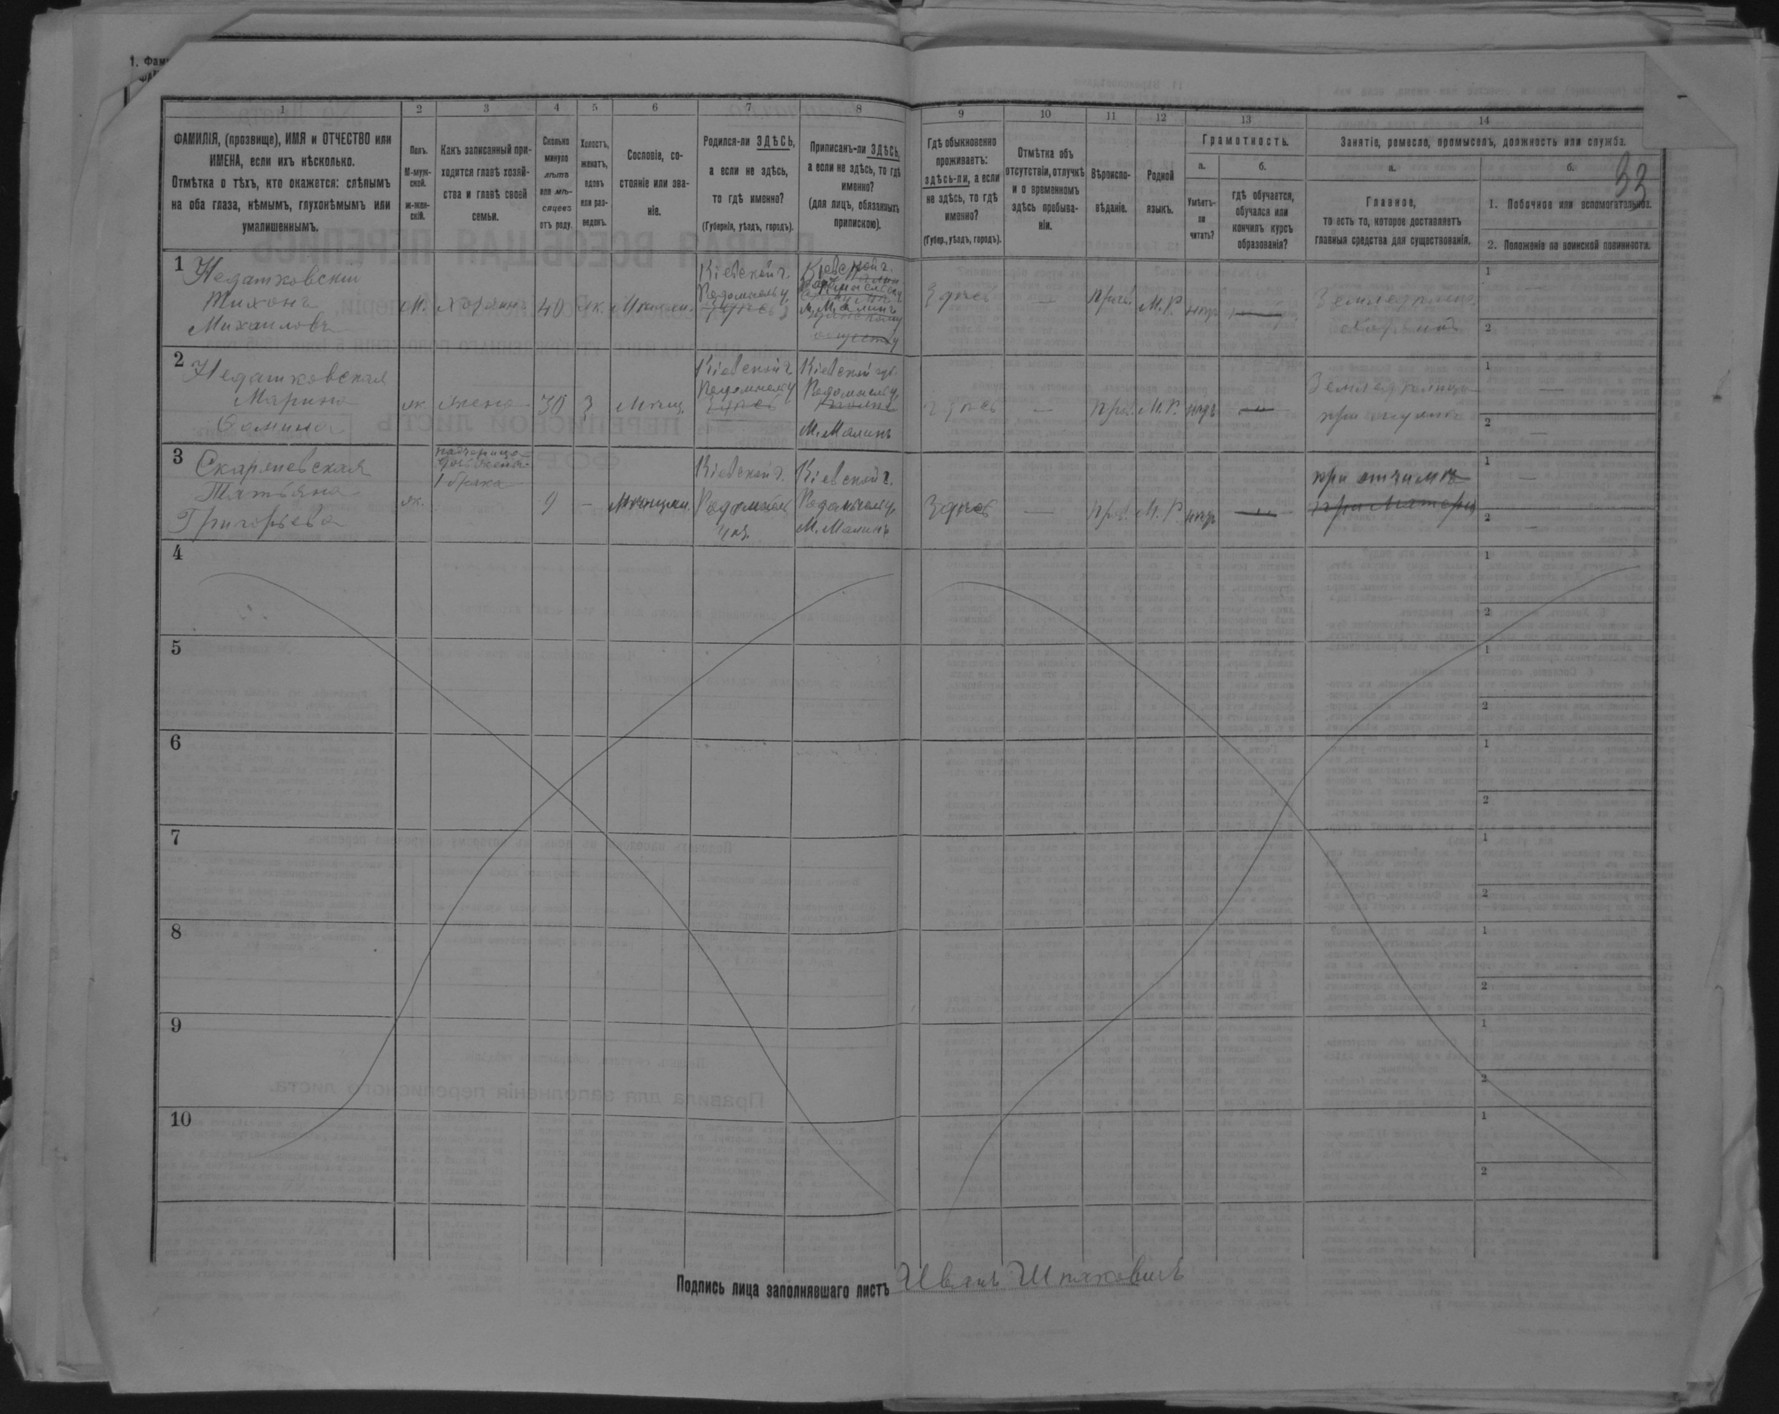 1. Фам
33
1
2
3
4
5
6
7
8
9
10
11
12
13
14
ФАМИЛІЯ, (прозвище), ИМЯ и ОТЧЕСТВО или
ИМЕНА, если ихъ нѣсколько.
Отмѣтка о тѣхъ, кто окажется: слѣпымъ
на оба глаза, нѣмымъ, глухонѣмымъ или
умалишеннымъ.
Полъ.
М-муж-
ской.
ж-жен-
скій.
Какъ записанный при-
ходится главѣ хозяй-
ства и главѣ своей
семьи.
Сколько
минуло
лѣтъ
или мѣ-
сяцевъ
отъ роду.
Холостъ,
женатъ,
вдовъ
или раз-
веденъ.
Сословіе, со-
стояніе или зва-
ніе.
Родился-ли ЗДѢСЬ,
а если не здѣсь,
то гдѣ именно?
(Губернія, уѣздъ, городъ).
Приписанъ-ли ЗДѢСЬ,
а если не здѣсь, то гдѣ
именно?
(для лицъ, обязанныхъ
припискою).
Гдѣ обыкновенно
проживаетъ:
здѣсь-ли, а если
не здѣсь, то гдѣ
именно?
(Губер., уѣздъ, городъ).
Отмѣтка объ
отсутствіи, отлучкѣ
и о временномъ
здѣсь пребыва-
ніи.
Вѣроиспо-
вѣданіе.
Родной
языкъ.
Грамотность.
а.
Умѣетъ-
ли
читать?
б.
гдѣ обучается,
обучался или
кончилъ курсъ
образованія?
Занятіе, ремесло, промыселъ, должность или служба.
а.
Главное,
то есть то, которое доставляетъ
главныя средства для существованія.
б.
1. Побочное или вспомогательное.
2. Положеніе по воинской повинности.
1 Недашковскій
Тихонъ
Михаиловъ
М. Хозяин 40 Мѣщан.
Кіевской г.
Радомыс. у.
Здѣсь
Кіевской г.
М. Малинъ
Здѣсь — Прав. М.Р. нѣтъ
Земледѣлецъ
1
2
2 Недашковская
Марина
Ѳомина
ж. жена 30 З Мѣщ.
Кіевской г.
Радомыс. у
Здѣсь
Кіевской губ.
Радомыс. у.
М. Малинъ
Здѣсь — Прав. М.Р. нѣтъ —
Земледѣлица
при мужѣ
1 —
2 —
3 Скаржевская
Татьяна
Григорьева
падчерица
1 брака
ж. 9 — Мѣщан.
Кіевской г.
Радомыс.
уѣз.
Кіевской г.
Радомыс. у.
М. Малинъ
Здѣсь — Прав. М.Р. нѣтъ —
при отчимѣ
при матери
1 —
2 —
4
1
2
5
1
2
6
1
2
7
1
2
8
1
2
9
1
2
10
1
2
Подпись лица заполнявшаго листъ Иванъ Шпаковичъ